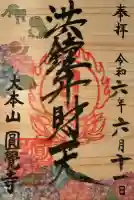 奉拝
令和六年六月十一日
洪鐘弁財天
大本山圓覺寺